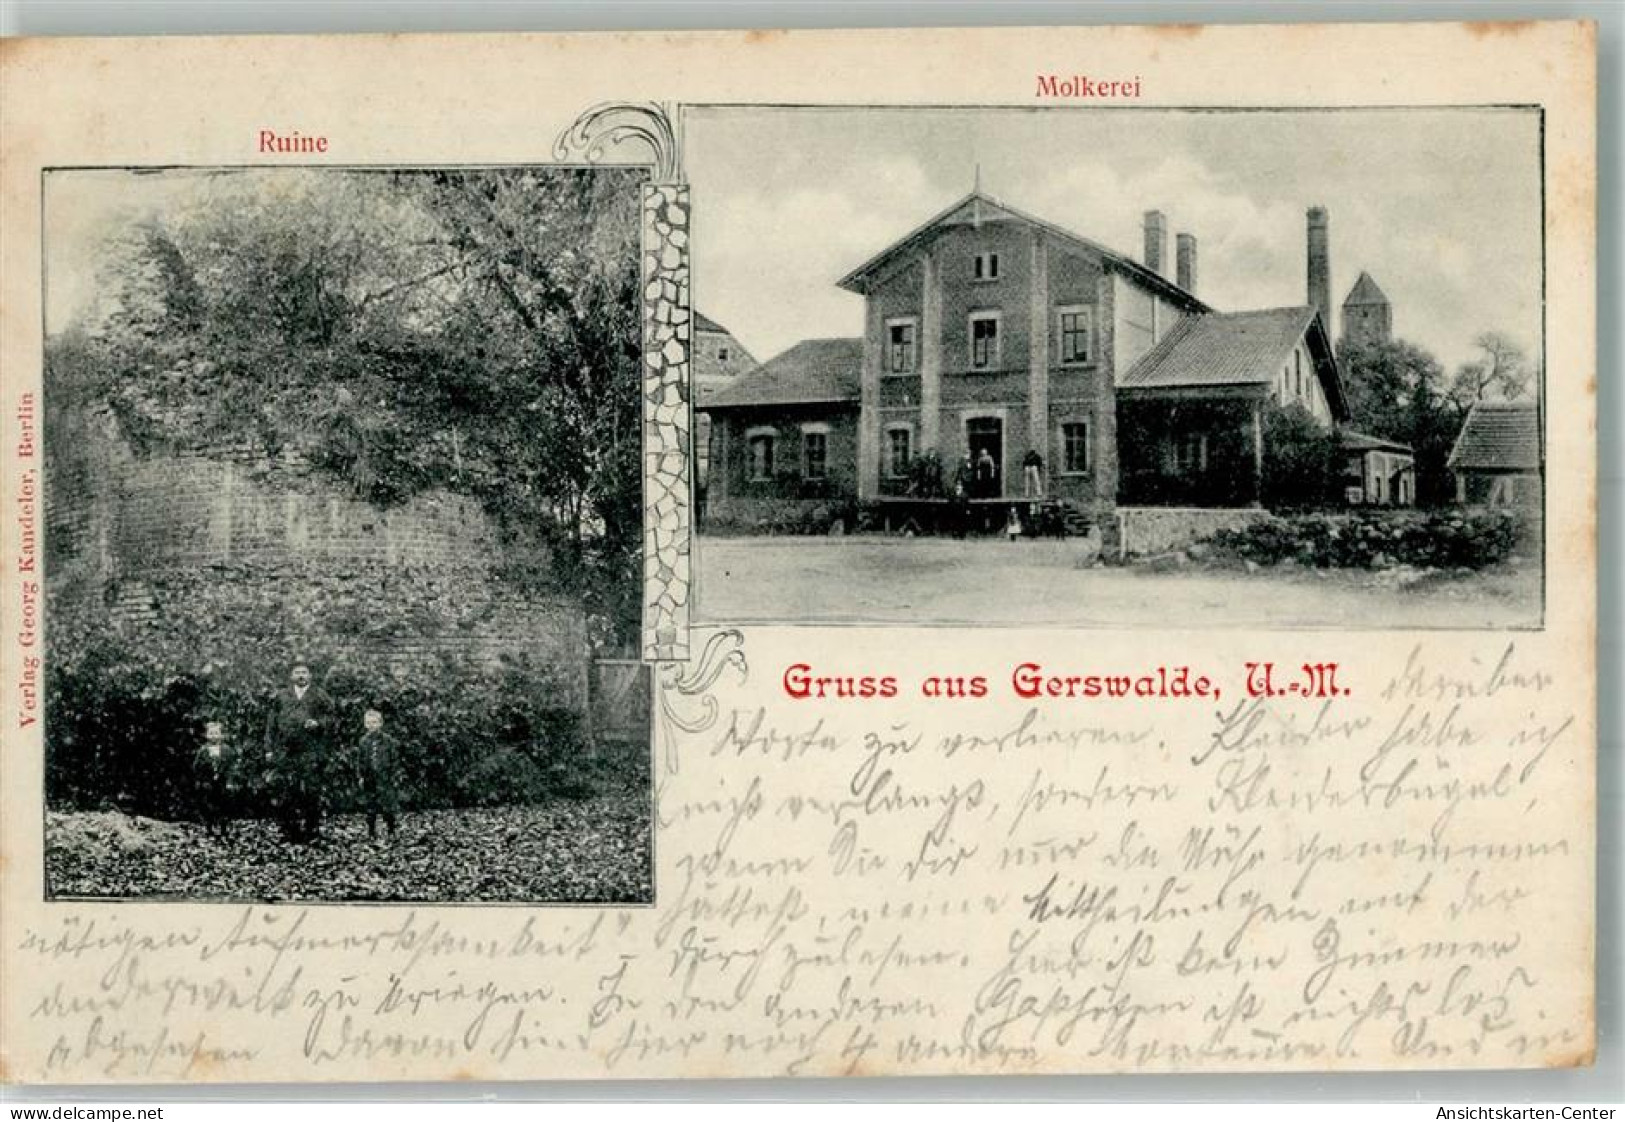 Molkerei
Ruine
Verlag Georg Kandeler, Berlin
Gruss aus Gerswalde, U.-M.
darüber
Worte zu verlieren. Kleider habe ich
nicht verlangt, sondern Kleiderbügel,
wenn Du dir nur die Mühe genommen
hättest, meine Mittheilungen mit der
nötigen Aufmerksamkeit" durchzulesen. Hier ist kein Zimmer
anderweit zu kriegen. In den anderen Gasthöfen ist nichts los
abgesehen davon sind hier noch 4 andere Monteure. Und in
delcampe.net
Ansichtskarten-Center